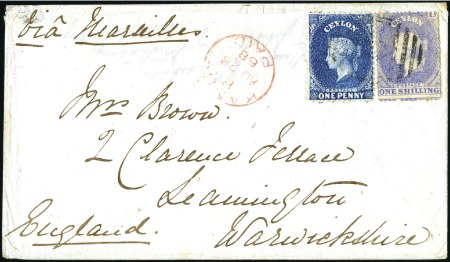 viâ Marseilles.
CEYLON
POSTAGE
ONE PENNY
CEYLON
POSTAGE
ONE SHILLING
PAID
Mrs Brown.
2 Clarence Terrace
Leamington
England.
Warwickshire